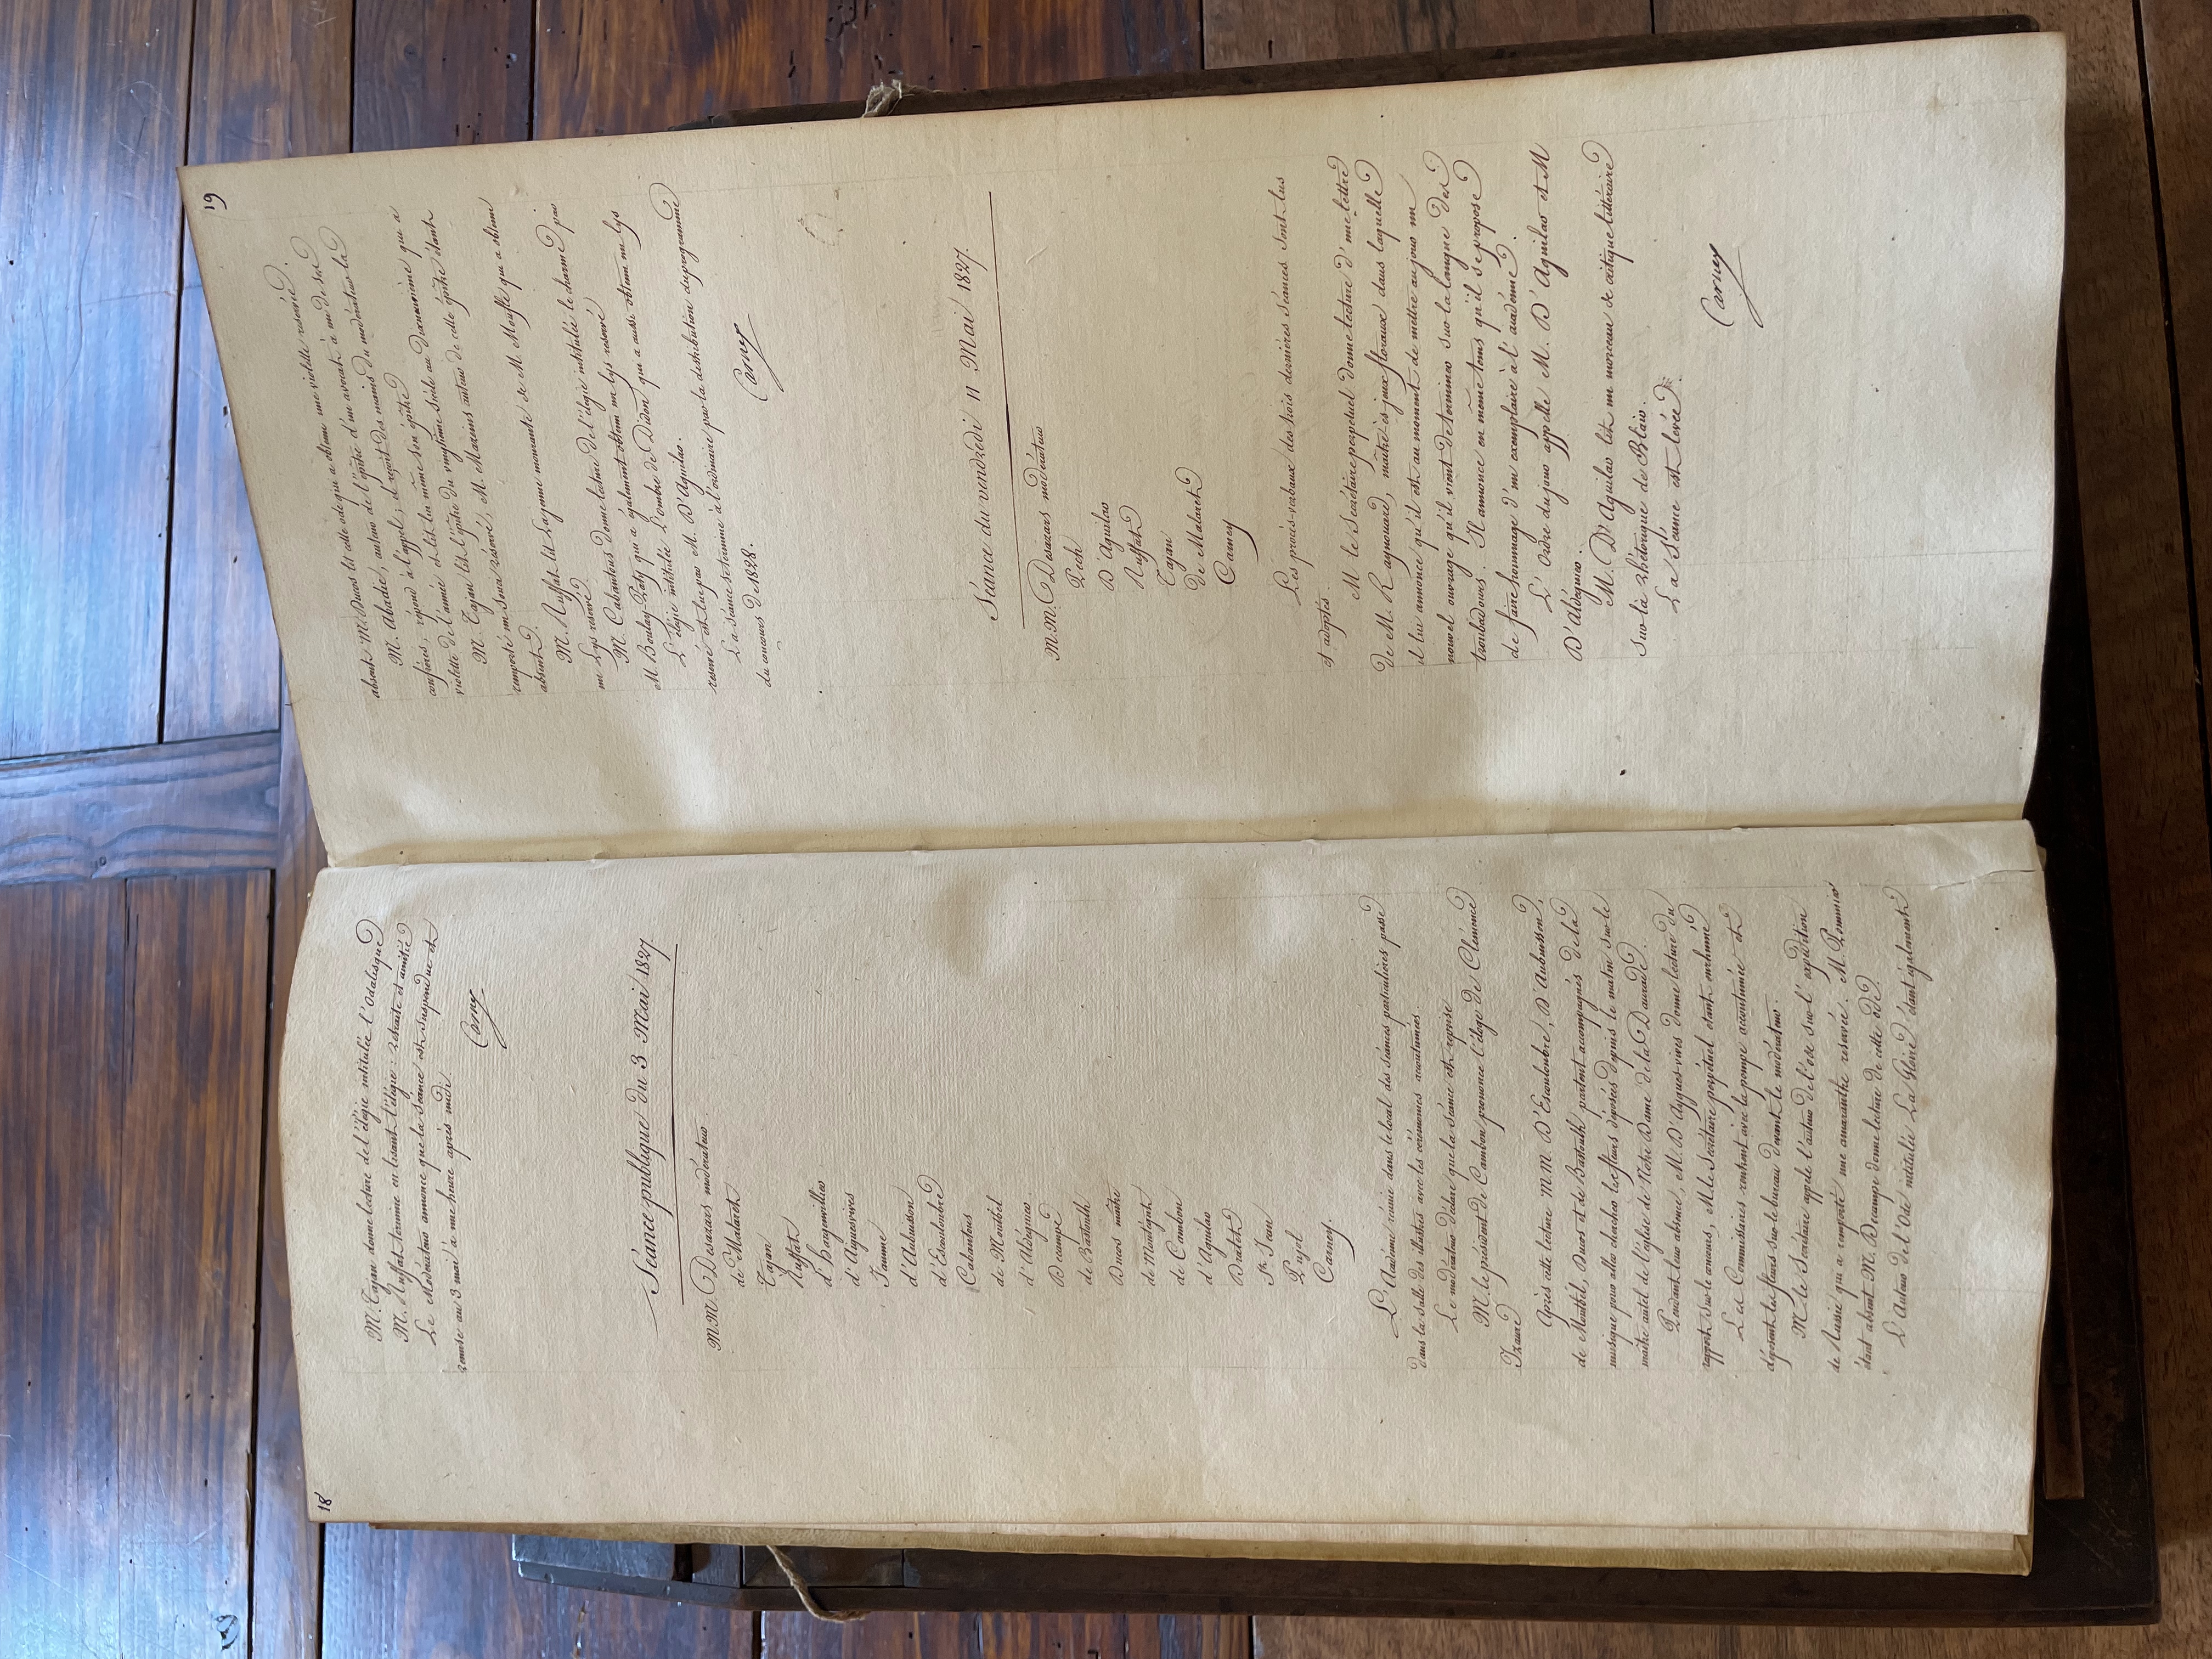 18
M. Tajan donne lecture de l'élégie intitulée l'Odalisque
M. Ruffat termine en lisant l'élégie: retraite et amitié
Le Modérateur annonce que la séance est suspendue et
remise au 3 mai à une heure après midi.
Carney
Séance publique du 3 Mai 1827
M.M. Desazars modérateur
de Malaret
Tajan
Ruffat
d'Hargenvillier
d'Aguesvives
Jamme
d'Aubuisson
d'Escouloubre
Cabantous
de Montbel
d'Aldéguier
Decampe
de Bastoulh
Ducos maître
de Montégut
de Cambon
d'Aguilar
Dralet
St. Jean
Pujol
Carney.
L'Académie réunie dans le local des séances particulières passe
dans la salle des illustres avec les cérémonies accoutumées.
Le modérateur déclare que la séance est reprise
M. le président de Cambon prononce l'éloge de Clémence
Izaure
Après cette lecture M M D'Escouloubre, D'Aubuisson,
de Montbel, Ducos et de Bastoulh partent accompagnés de la
musique pour aller chercher les fleurs déposées depuis le matin sur le
maître autel de l'église de Notre Dame de la Daurade.
Pendant leur absence, M. D'Aygues-vives donne lecture du
rapport sur le concours, M. le Secrétaire perpétuel étant enrhumé
Les Commissaires rentrent avec la pompe accoutumée et
déposent les fleurs sur le bureau devant le modérateur.
M. le Secrétaire appelle l'auteur de l'ode sur l'expédition
de Russie qui a remporté une amaranthe réservée. M.
étant absent M. Decampe donne lecture de cette ode.
L'Auteur de l'Ode intitulée La Gloire étant également
19
absent M. Ducos lit cette ode qui a obtenu une violette reservée.
M. Abadie, auteur de l'épître d'un avocat à un de ses
confrères, répond à l'appel; il reçoit des mains du modérateur la
violette de l'année et lit lui même son épître
M. Tajan lit l'épître du vingtième siècle au dixneuvième qui a
remporté un Souci réservé, M. Mazeins auteur de cette épître étant
absent.
M. Ruffat lit La jeune mourante de M. Mouffle qui a obtenu
un Lys reservé
M. Cabantous donne lecture de l'élégie intitulée le charme par
M Boulay-Paty qui a également obtenu un lys reservé
L'élégie intitulée L'ombre de Didon qui a aussi obtenu un lys
reservé est lue par M. D'Aguilar.
La séance se termine à l'ordinaire par la distribution du programme
du concours de 1828.
Carney
Séance du vendredi 11 Mai 1827.
M.M. Desazars modérateur
Pech
D'Aguilar
Ruffat
Tajan
De Malaret
Carney
Les procès-verbaux des trois dernières séances sont lus
et adoptés
M le Secrétaire perpétuel donne lecture d'une lettre
de M. Raynouard, maître ès jeux floraux dans laquelle
il lui annonce qu'il est au moment de mettre au jour un
nouvel ouvrage qu'il vient de terminer sur la langue des
troubadours. Il annonce en même tems qu'il se propose
de faire hommage d'un exemplaire à l'académie.
L'Ordre du jour appelle M. D'Aguilar et M
D'Aldeguier.
M. D'Aguilar lit un morceau de critique littéraire
sur la rhétorique de Blair.
La Séance est levée.
Carney